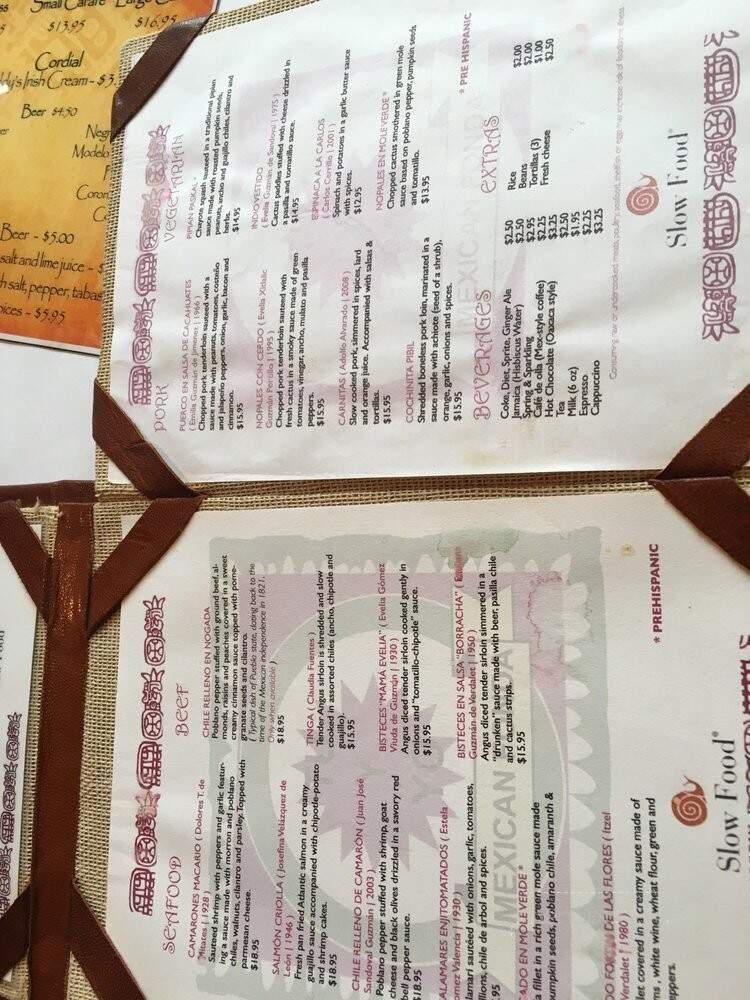 Small Carafe Large
$13.95 $16.95
Cordial
Irish Cream - $
Beer $4.50
Modelo
Beer - $5.00
salt and lime juice - $
salt, pepper,
- $5.95
PORK
PUERCO EN SALSA DE CACAHUATES
( Emilia Guzman de Jiménez | 1966 )
Chopped pork tenderloin sauteed with a
sauce made with peanuts, tomatoes, costeño
and jalapeño peppers, onion, garlic, bacon and
cinnamon.
$15.95
NOPALES CON CERDO ( Evelia
Guzmán Perillo | 1995 )
Chopped pork tenderloin sauteed with
fresh cactus in a smoky sauce made of green
tomatoes, vinegar, ancho, mulato and pasilla
peppers.
$15.95
CARNITAS ( Adolfo Alvarado | 2008 )
Slow cooked pork, simmered in spices, lard
and orange juice. Accompanied with salsas &
tortillas.
$15.95
COCHINITA PIBIL
Shredded boneless pork loin, marinated in a
sauce made with achiote (seed of a shrub),
orange, garlic, onions and spices.
$15.95
VEGETARIAN
PIPIAN PASKAL *
Chayote squash sauteed in a traditional pipian
sauce made with roasted pumpkin seeds,
peanuts, ancho and guajillo chiles, cilantro and
herbs.
$14.95
INDIO VESTIDO
( Evelia Guzmán de Sandoval | 1975 )
Cactus paddles stuffed with cheese drizzled in
a pasilla and tomatillo sauce.
$14.95
ESPINACA A LA CARLOS
( Carlos Carrillo | 2001 )
Spinach and potatoes in a garlic butter sauce
with spices.
$12.95
NOPALES EN MOLE VERDE *
Chopped cactus smothered in green mole
sauce based on poblano pepper, pumpkin seeds
and tomatillo.
$13.95
* PRE HISPANIC
BEVERAGES
Coke, Diet, Sprite, Ginger Ale $2.50
Jamaica (Hibiscus Water) $2.50
Spring & Sparkling $2.95
Café de olla (Mex-style coffee) $2.25
Hot Chocolate (Oaxaca style) $3.25
Tea $2.50
Milk (6 oz) $1.95
Espresso $2.25
Cappuccino $3.25
EXTRAS
Rice $2.00
Beans $2.00
Tortillas (3) $1.00
Fresh cheese $2.50
Slow Food®
SEAFOOD
CAMARONES MACARIO ( Dolores T. de
Milanes | 1928 )
Sauteed shrimp with peppers and garlic featur-
ing a sauce made with morron and poblano
chiles, walnuts, cilantro and parsley. Topped with
parmesan cheese.
$18.95
SALMÓN CRIOLLA ( Josefina Velázquez de
León | 1946 )
Fresh pan fried Atlantic salmon in a creamy
guajillo sauce accompanied with chipotle-potato
and shrimp cakes.
$18.95
CHILE RELLENO DE CAMARÓN ( Juan José
Sandoval Guzmán | 2003 )
Poblano pepper stuffed with shrimp, goat
cheese and black olives drizzled in a savory red
bell pepper sauce.
$18.95
ALAMARES ENJITOMATADOS ( Estela
omez Valencia | 1930 )
lamari sautéed with onions, garlic, tomatoes,
llions, chile de arbol and spices.
.95
ADO EN MOLE VERDE *
a fillet in a rich green mole sauce made
umpkin seeds, poblano chile, amaranth &
DE LAS FLORES ( Itzel
Verdalet | 1980 )
let covered in a creamy sauce made of
ms, white wine, wheat flour, green and
ppers.
BEEF
CHILE RELLENO EN NOGADA
Poblano pepper stuffed with ground beef, al-
monds, raisins and peaches covered in a sweet
creamy cinnamon sauce topped with pome-
granate seeds and cilantro.
( Typical dish of Puebla state, dating back to the
time of the Mexican independence in 1821.
Only when available )
$18.95
TINGA ( Claudia Fuentes )
Tender Angus sirloin is shredded and slow
cooked in assorted chiles (ancho, chipotle and
guajillo).
$15.95
BISTECES "MAMÁ EVELIA" ( Evelia Gómez
Viuda de Guzmán | 1930 )
Angus diced tender sirloin cooked gently in
onions and "tomatillo-chipotle" sauce.
$15.95
BISTECES EN SALSA "BORRACHA" (
Guzmán de Verdalet | 1950 )
Angus diced tender sirloin simmered in a
"drunken" sauce made with beer, pasilla chile
and cactus strips.
$15.95
MEXICAN
* PREHISPANIC
Slow Food®